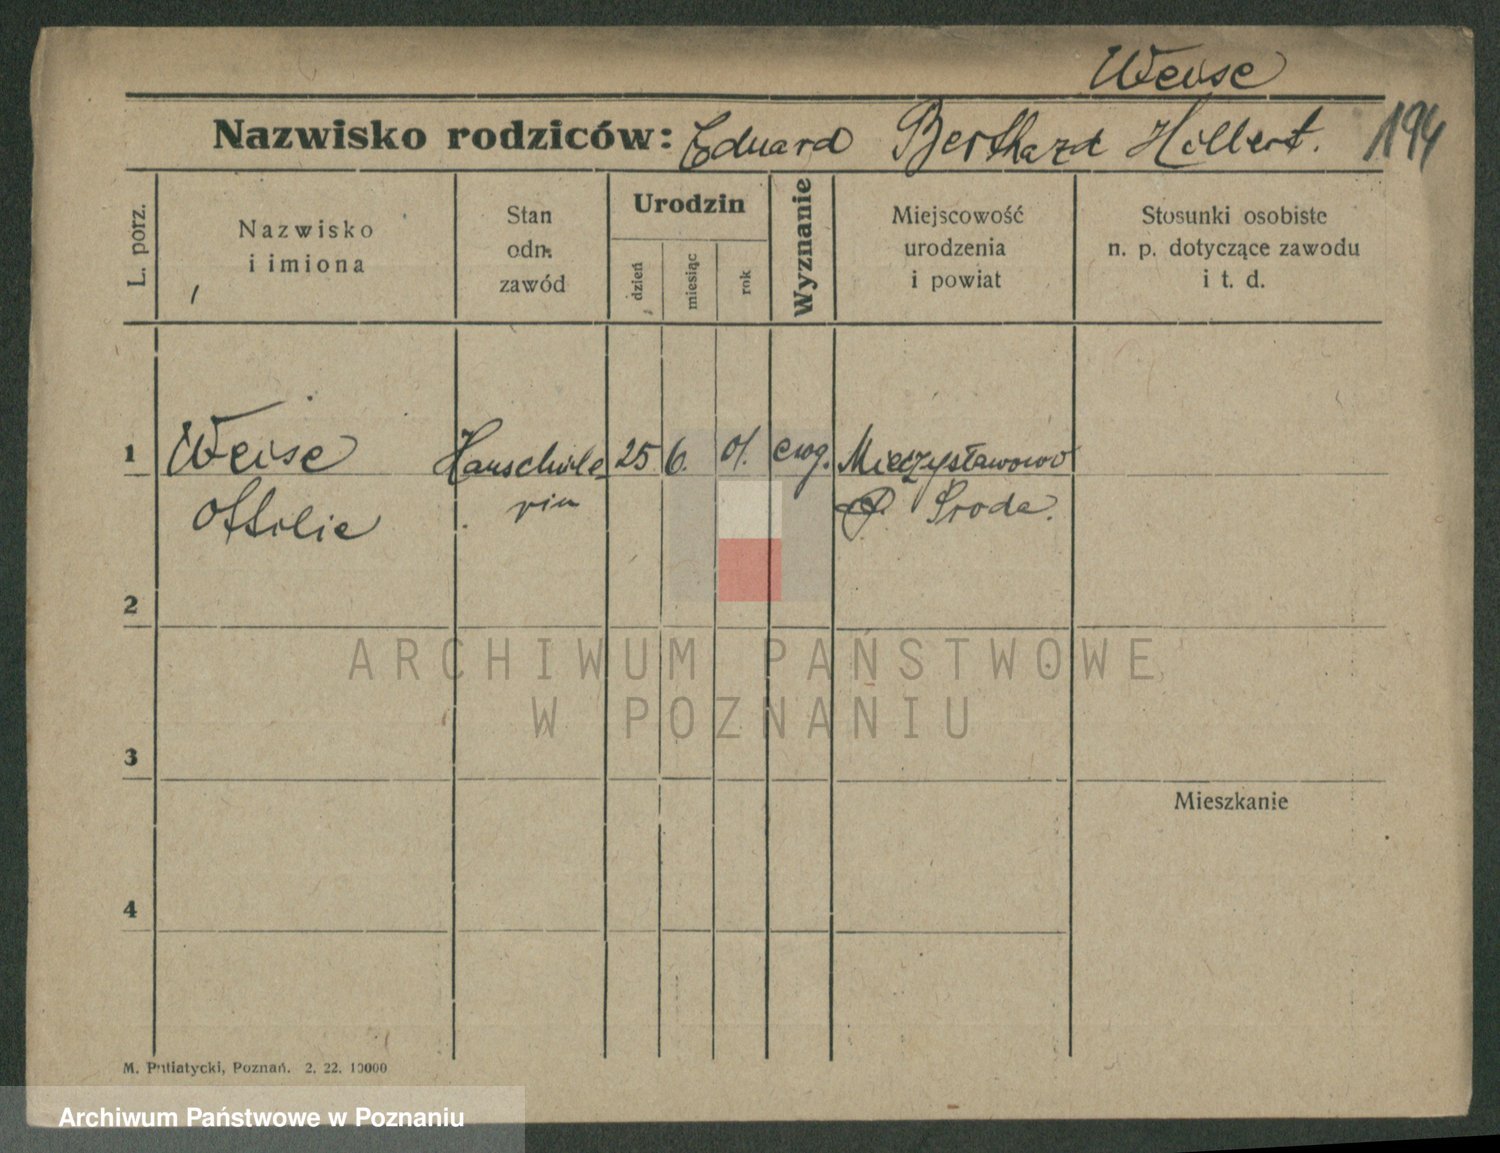 Weise
Nazwisko rodziców: Eduard Berthard Hilbert. 194
L. porz.
Nazwisko
i imiona
Stan
odn.
zawód
Urodzin
dzień
miesiąc
rok
Wyznanie
Miejscowość
urodzenia
i powiat
Stosunki osobiste
n. p. dotyczące zawodu
i t. d.
1 Weise Hausschüle 25. 6. 01. ewg. Mieczysławowo
Ottilie rin P. Środa.
2
3
Mieszkanie
4
M. Putiatycki, Poznań. 2. 22. 10000
ARCHIWUM PAŃSTWOWE
W POZNANIU
Archiwum Państwowe w Poznaniu